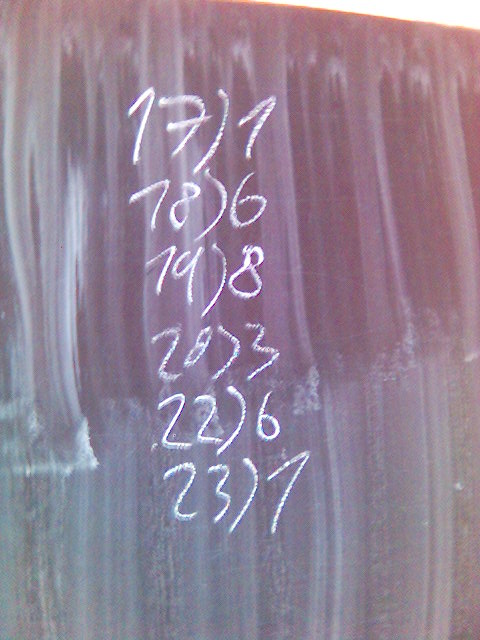 17) 1
18) 6
19) 8
20) 3
22) 6
23) 1